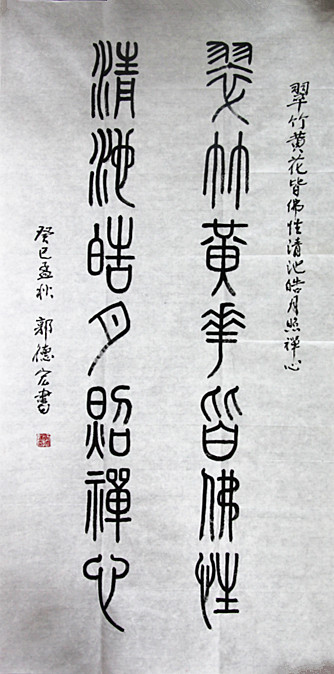 翠竹黄花皆佛性清池皓月照禅心
翠竹黃華皆佛性
清池皓月照禪心
癸巳孟秋 郭德宏書